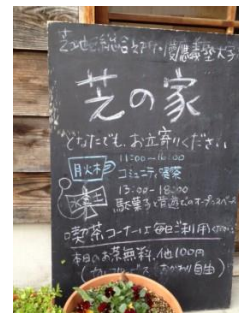 芝地区総合支所 慶應義塾大学
芝の家
どなたでも、お立寄りください
月火木
11:00-16:00
コミュニティ喫茶
水金土
13:00-18:00
駄菓子と昔遊びのオープンスペース
喫茶コーナーは毎日ご利用
本日のお茶無料、他100円
おかわり自由)